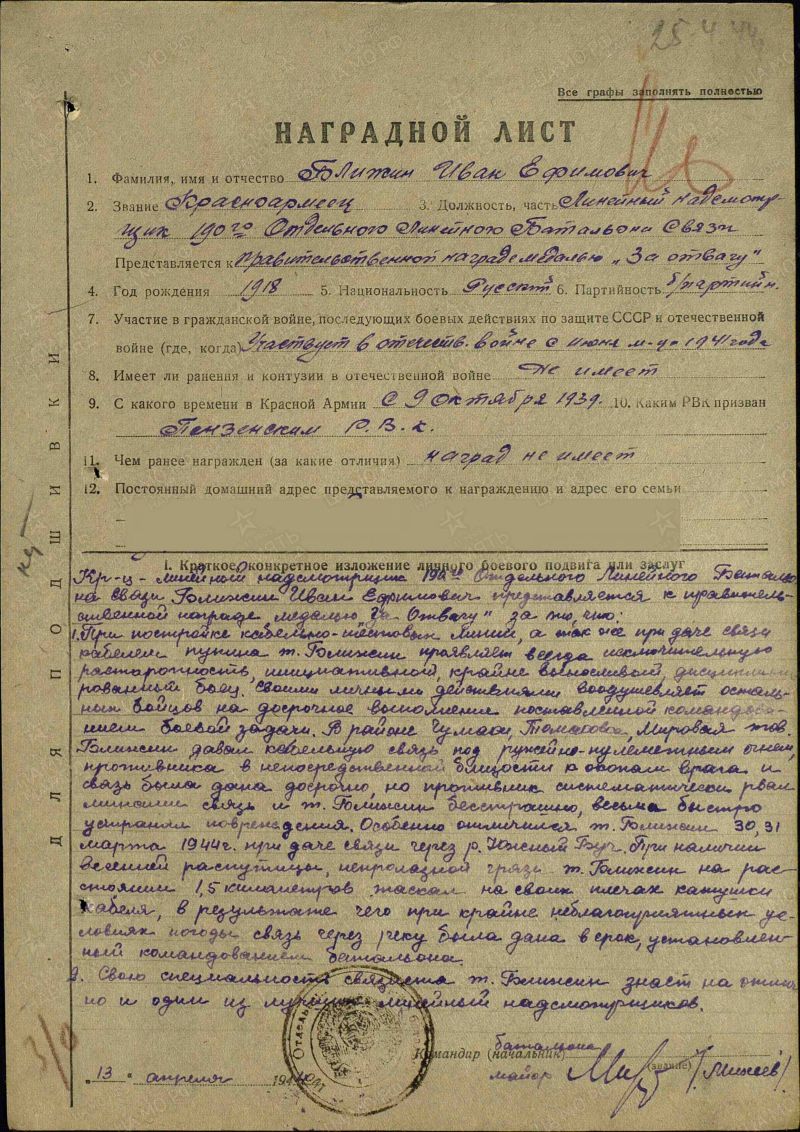 25 4 44
Все графы заполнять полностью
НАГРАДНОЙ ЛИСТ
1. Фамилия, имя и отчество Ближин Иван Ефимович
2. Звание Красноармеец 3. Должность, часть Линейный надсмотр-
щик 190го Отдельного Линейного Батальона Связи
Представляется к правительственной награде медалью „За отвагу"
4. Год рождения 1918 5. Национальность Русский 6. Партийность б/партийн.
7. Участие в гражданской войне, последующих боевых действиях по защите СССР и отечественной
войне (где, когда) Участвует в отечеств. войне с июня м-ца 1941 года
8. Имеет ли ранения и контузии в отечественной войне Не имеет
9. С какого времени в Красной Армии С 9 октября 1939. 10. Каким РВК призван
Пензенским Р.В.К.
11. Чем ранее награжден (за какие отличия) наград не имеет
12. Постоянный домашний адрес представляемого к награждению и адрес его семьи
ДЛЯ ПОДШИВКИ
I. Краткое, конкретное изложение личного боевого подвига или заслуг
Кр-ц - линейный надсмотрщик 190го Отдельного Линейного Батальо-
на связи Ближин Иван Ефимович представляется к правитель-
ственной награде, медалью „За Отвагу" за то, что:
1. При постройке кабельно-шестовых линий, а так же при даче связи
кабелем пупина т. Ближин проявляет всегда исключительную
расторопность, инициативной, крайне выносливый, дисциплини-
рованный боец. Своими личными действиями воодушевляет осталь-
ных бойцов на досрочное выполнение поставленной командова-
нием боевой задачи. В районе Чумаки, Томаковка, Мировая тов.
Ближин давал кабельную связь под ружейно-пулеметным огнем,
противника в непосредственной близости к окопам врага и
связь была дана досрочно, но противник систематически рвал
линиями связь и т. Ближин бесстрашно, весьма быстро
устранял повреждения. Особенно отличился т. Ближин 30, 31
марта 1944г. при даче связи через р. Южный Буг. При наличии
весенней распутицы, непролазной грязи т. Ближин на рас-
стоянии 1,5 километров таскал на своих плечах катушки
кабеля, в результате чего при крайне неблагоприятных ус-
ловиях погоды связь через реку была дана в срок, установлен-
ный командованием батальона.
2. Свою специальность связиста т. Ближин знает на отлич-
но и один из лучших линейный надсмотрщиков.
батальона
Командир (начальник)
майор (звание) (Михеев)
„13" апреля 1944 г.